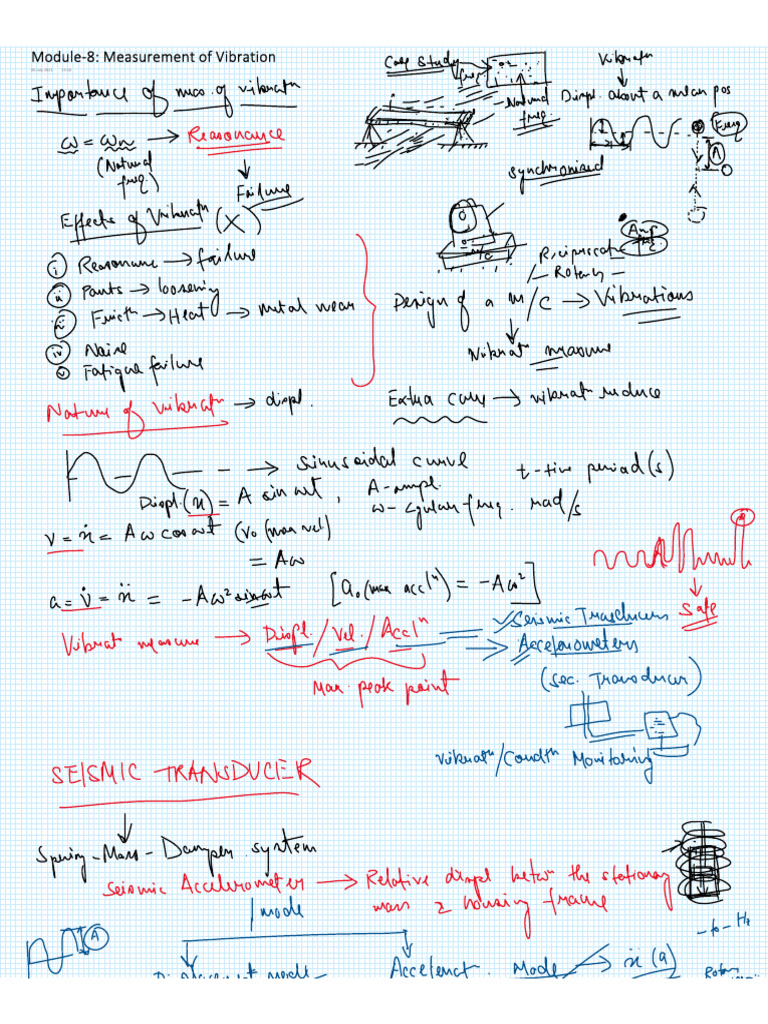 Module-8: Measurement of Vibration
Importance of meas. of vibratⁿ
Case Study
freq
Natural
freq.
Vibratⁿ
Displ. about a mean pos
Freq
A
synchronised
ω = ωn → Reasonance
(Natural
freq)
Failure
Effects of Vibratⁿ (X)
i Reasonance → failure
ii Parts → loosening
Frictⁿ → Heat → metal wear
iv Noise
v Fatigue failure
M/C
Reciprocatⁿ
Rotary
Design of a M/C → Vibrations
Vibratⁿ measure
Extra care → vibratⁿ reduce
Nature of vibratⁿ → displ.
→ sinusoidal curve
t - time period (s)
Displ. (x) = A sin ωt , A - ampl.
ω - angular freq. rad/s
v = ẋ = Aω cos ωt (v₀ (max vel)
= Aω
a = v̇ = ẍ = -Aω² sin ωt [a₀ (max accⁿ) = -Aω²]
Safe
Vibratⁿ measure → Displ. / Vel. / Acclⁿ
Max. peak point
Seismic Trasducers
Accelerometers
(Sec. Transducer)
Vibratⁿ/Condtⁿ Monitoring
SEISMIC TRANSDUCER
Spring - Mass - Damper system
Seismic Accelerometer → Relative displ betⁿ the stationary
mass & housing frame
mode
A
Displacement mode
Acceleratⁿ. Mode → ẍ (a)
- to - Hz
Rotary